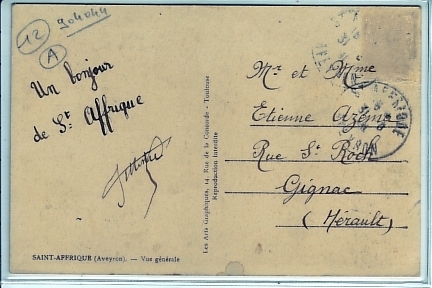 12
A
904044
Un bonjour
de St Affrique
Mr et Mme
Etienne Azéma
Rue St Roch
Gignac
(Hérault)
Les Arts Graphiques, 14 Rue de la Concorde - Toulouse
Reproduction interdite
SAINT-AFFRIQUE (Aveyron). — Vue générale
ST AFFRIQUE